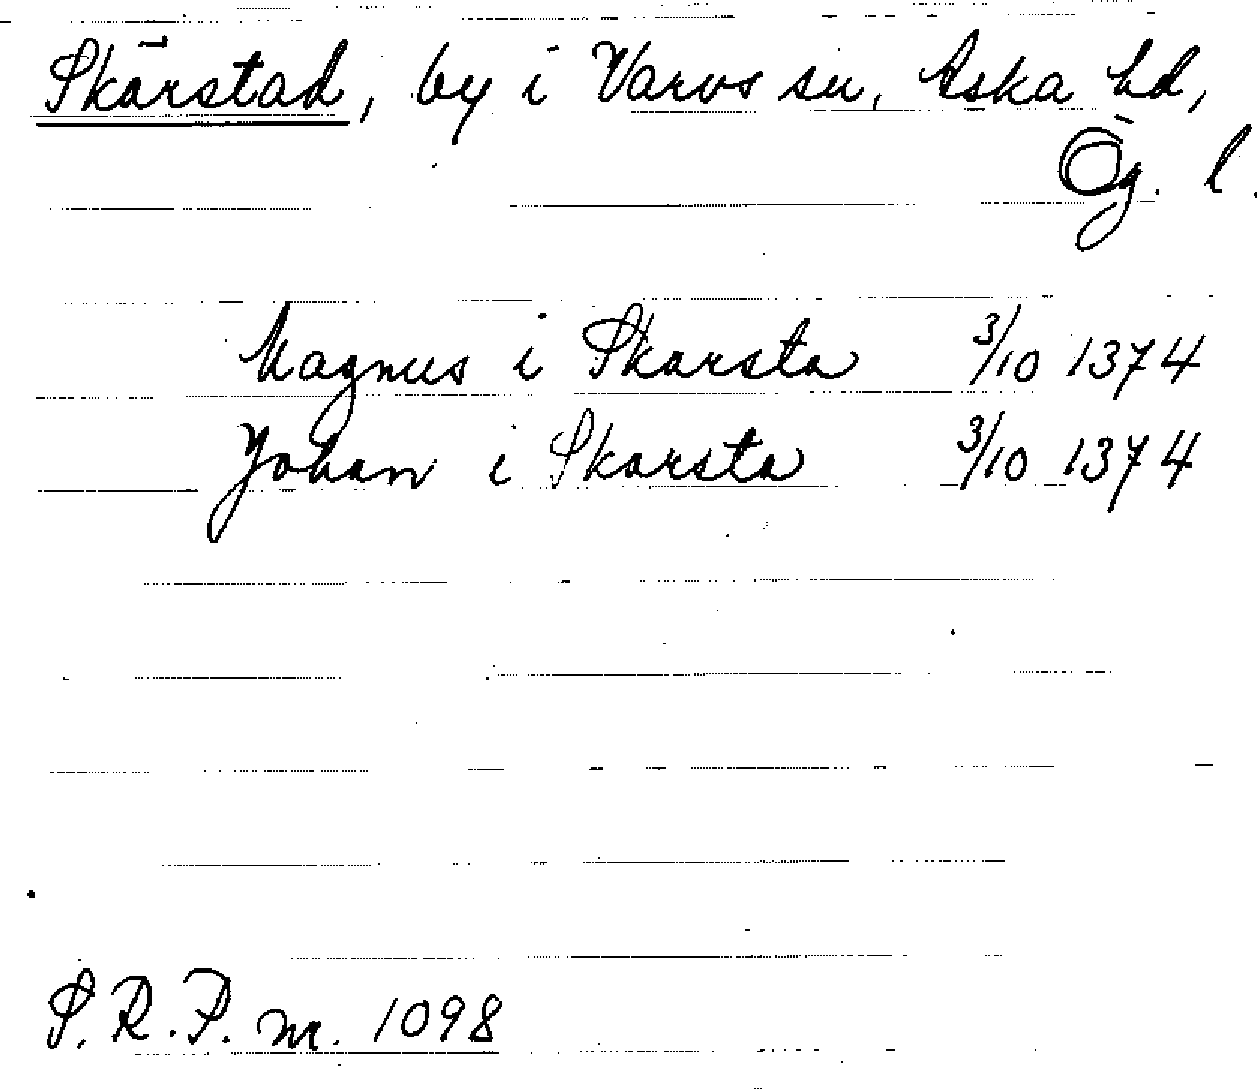 Skärstad, by i Varvs sn, Aska hd,
Ög. l.
Magnus i Skarsta 3/10 1374
Johan i Skarsta 3/10 1374
S. R. P. nr. 1098